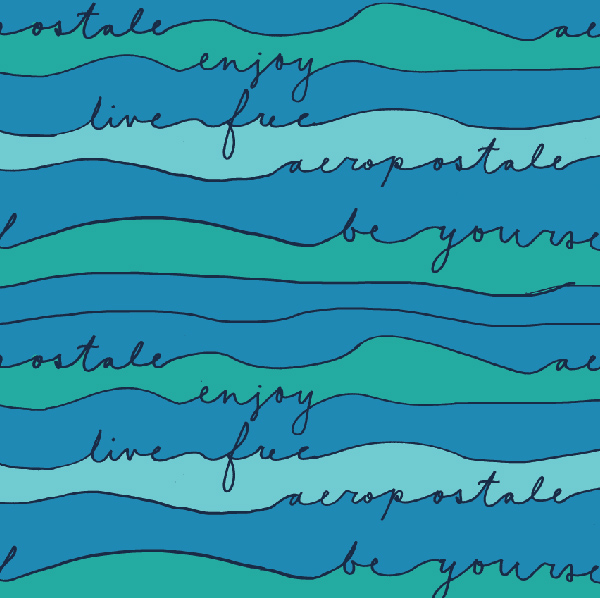 postale ae
enjoy
live free
aeropostale
l be yourse
postale ae
enjoy
live free
aeropostale
l be yourse